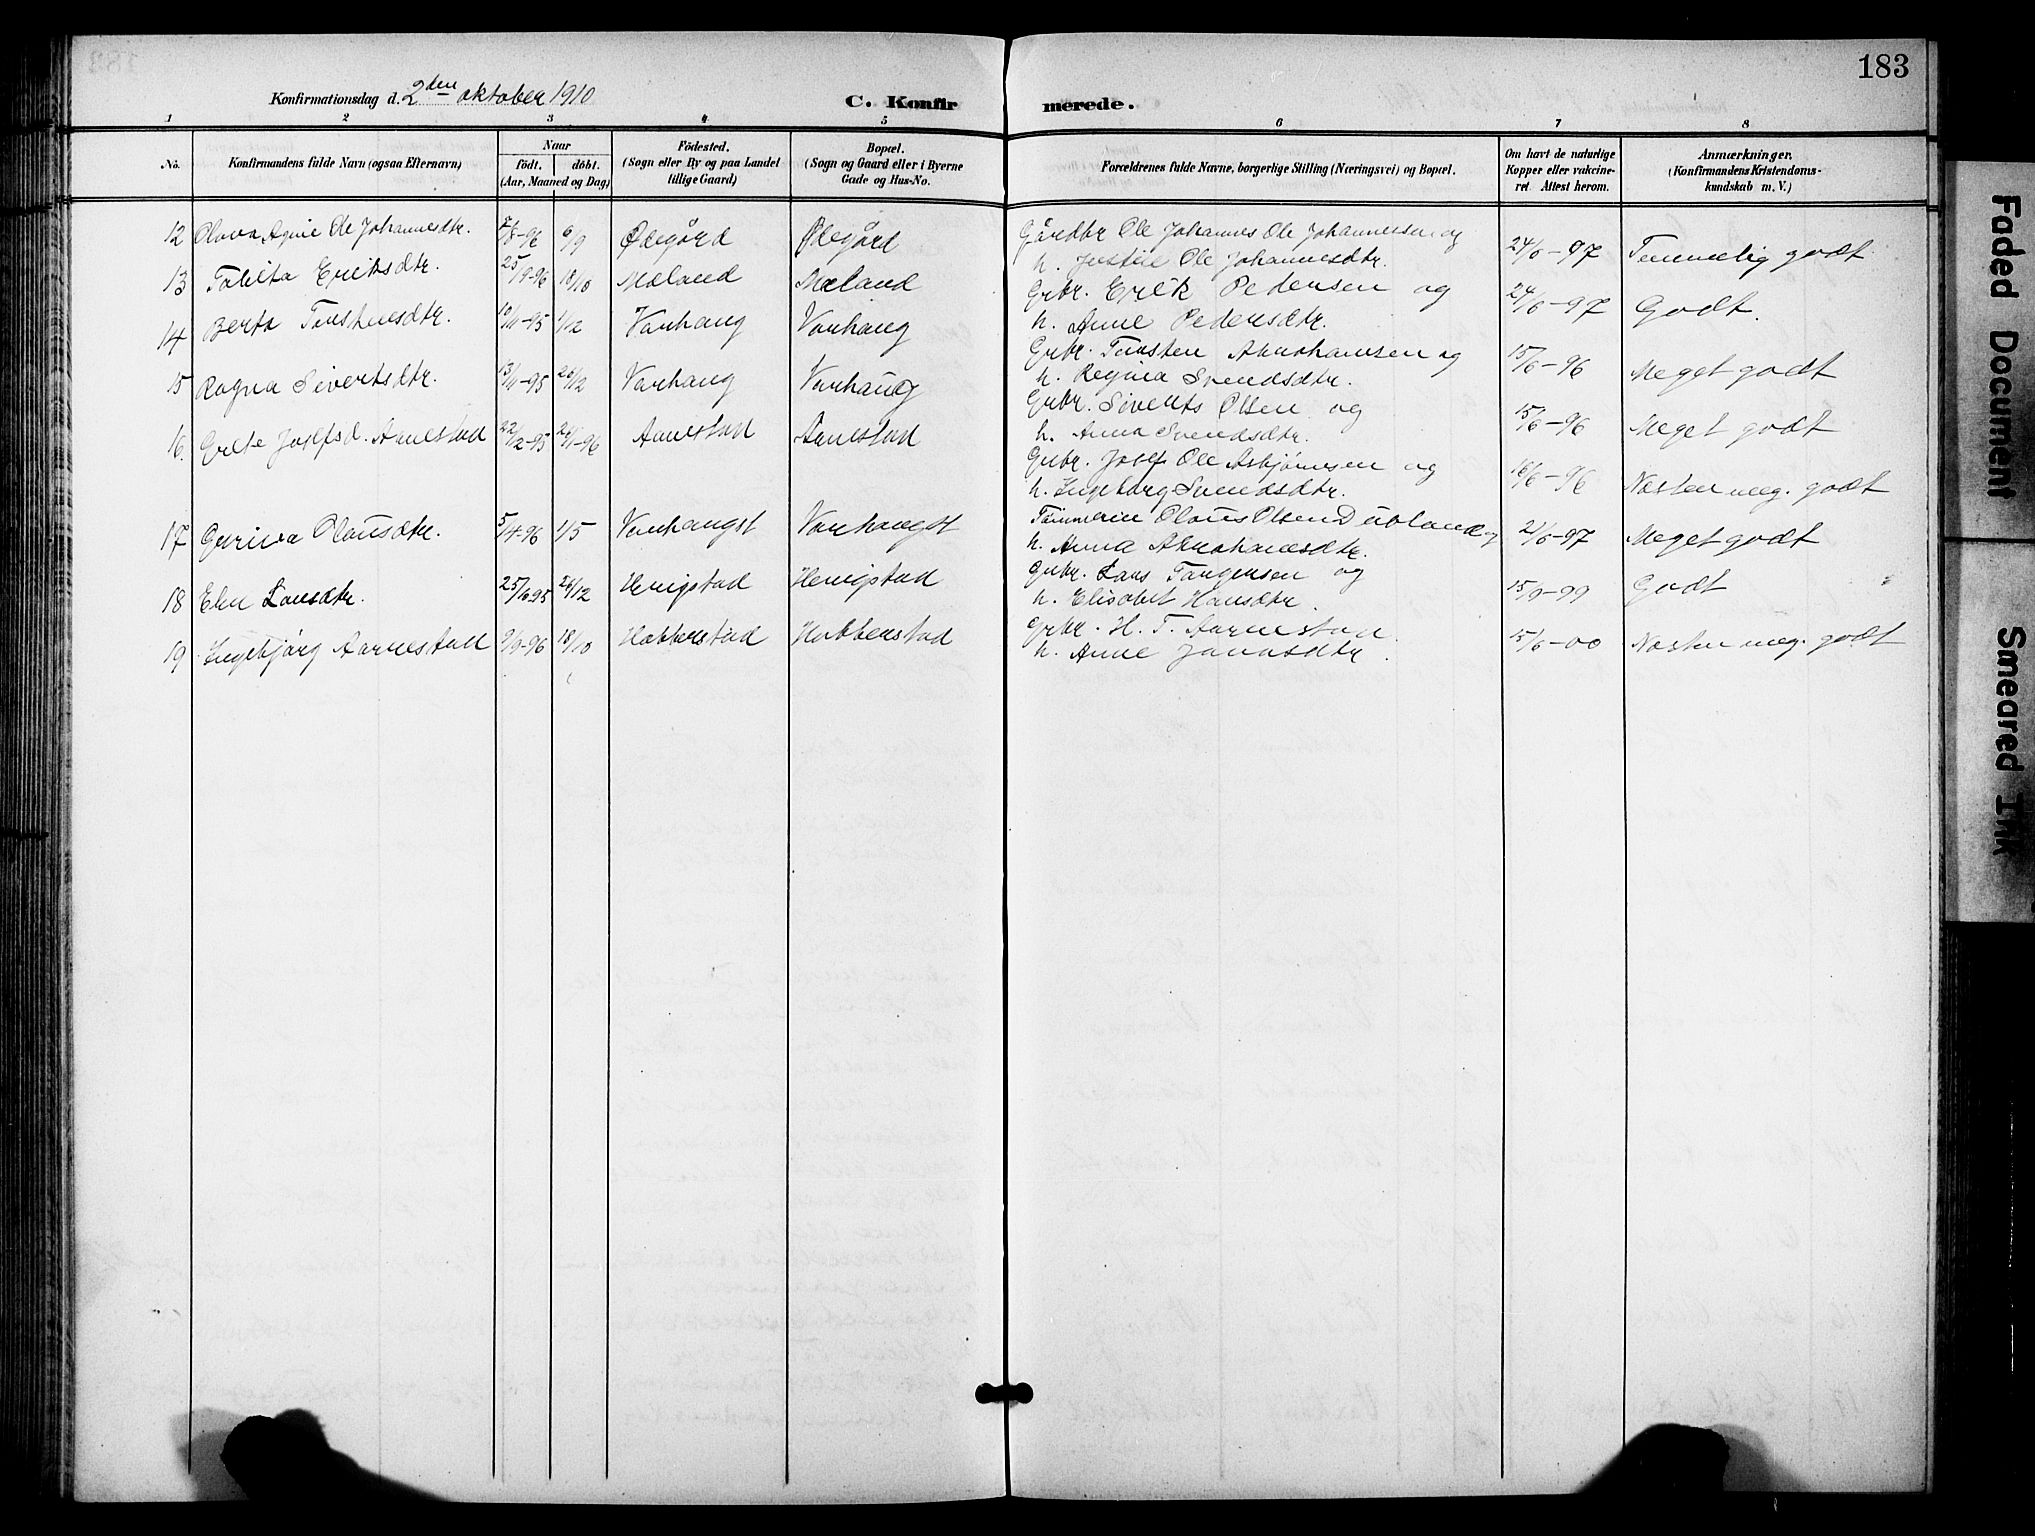 183
Konfirmationsdag d. 2den oktober 1910
C. Konfirmerede.
1 2 3 4 5 6 7 8
No. Konfirmandens fulde Navn (ogsaa Efternavn) Naar født. døbt. (Aar, Maaned og Dag) Fødested. (Sogn eller By og paa Landet tillige Gaard) Bopæl. (Sogn og Gaard eller i Byerne Gade og Hus-No. Forældrenes fulde Navne, borgerlige Stilling (Næringsvei) og Bopæl. Om havt de naturlige Kopper eller vakcineret Attest herom. Anmærkninger. (Konfirmandens Kristendomskundskab m. V.)
12 Olova Agnie Ole Johannesdtr. 7/8-96 6/9 Ødegård Ødegård Gårdbr Ole Johannes Ole Johannesen og 24/6-97 Temmelig godt
h. Ole Johannesdtr.
13 Tabita Eriksdtr. 25/9-96 18/10 Mæland Mæland Grbr. Erik Pedersen og 24/6-97 Godt.
h. Anne Pedersdtr.
14 Berta Torstensdtr. 10/11-95 1/12 Varhaug Varhaug Grbr. Torsten Abrahamsen og 15/6-96 Meget godt
h. Regina Svendsdtr.
15 Ragna Sivertsdtr. 13/11-95 26/12 Varhaug Varhaug Grbr. Siverts Olsen og 15/6-96 Meget godt
h. Anna Svendsdtr.
16. Grete Josefsd. Aarrestad 22/12-95 26/1-96 Aarrestad Aarrestad Grbr. Josef Ole Asbjørnsen og 16/6-96 Næsten meg. godt
h. Ingeborg Svendsdtr.
17 Gurina Olausdtr. 5/4-96 1/5 Varhaugst Varhaugst Tømmerm Olaus Olsen Dubland og 21/6-97 Meget godt
h. Anna Abrahamsdtr.
18 Elen Larsdtr. 25/1095 26/12 Herigstad Herigstad Grbr. Lars Torgersen og 15/9-99 Godt
h. Elisabet Hansdtr.
19 Ingebjørg Aarrestad 9/9-96 18/10 Habberstad Habberstad Grbr. H. T. Aarrestad. 15/6-00 Næsten meg. godt
h. Anne Jonasdtr.
Faded Document
Smeared Ink